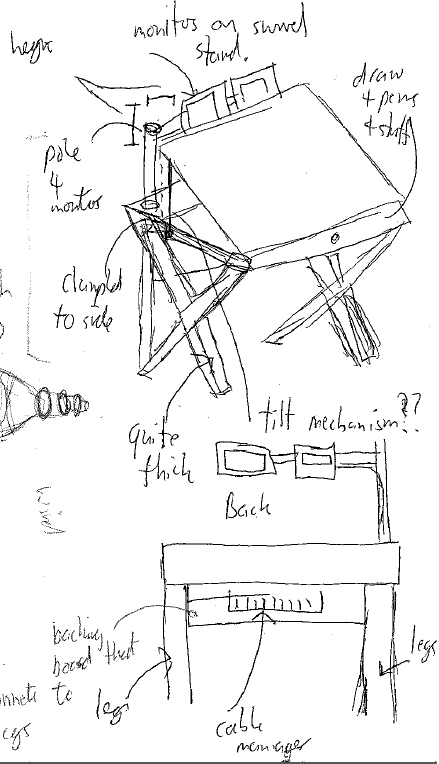 monitor on swivel
stand.
draw
4 pens
+ stuff
pole
4
monitor
clamped
to side
quite
thick
tilt mechanism??
Back
backing
board that
to
legs
legs
legs
cable
manager